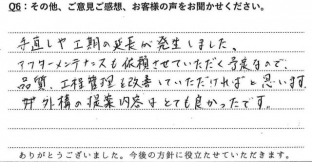 Q6：その他、ご意見ご感想、お客様の声をお聞かせください。
手直しや工期の延長が発生しました、
アフターメンテナンスも依頼させていただく予定なので、
品質、工程管理を改善していただければと思います。
外構の提案内容はとても良かったです。
ありがとうございました。今後の方針に役立たせていただきます。